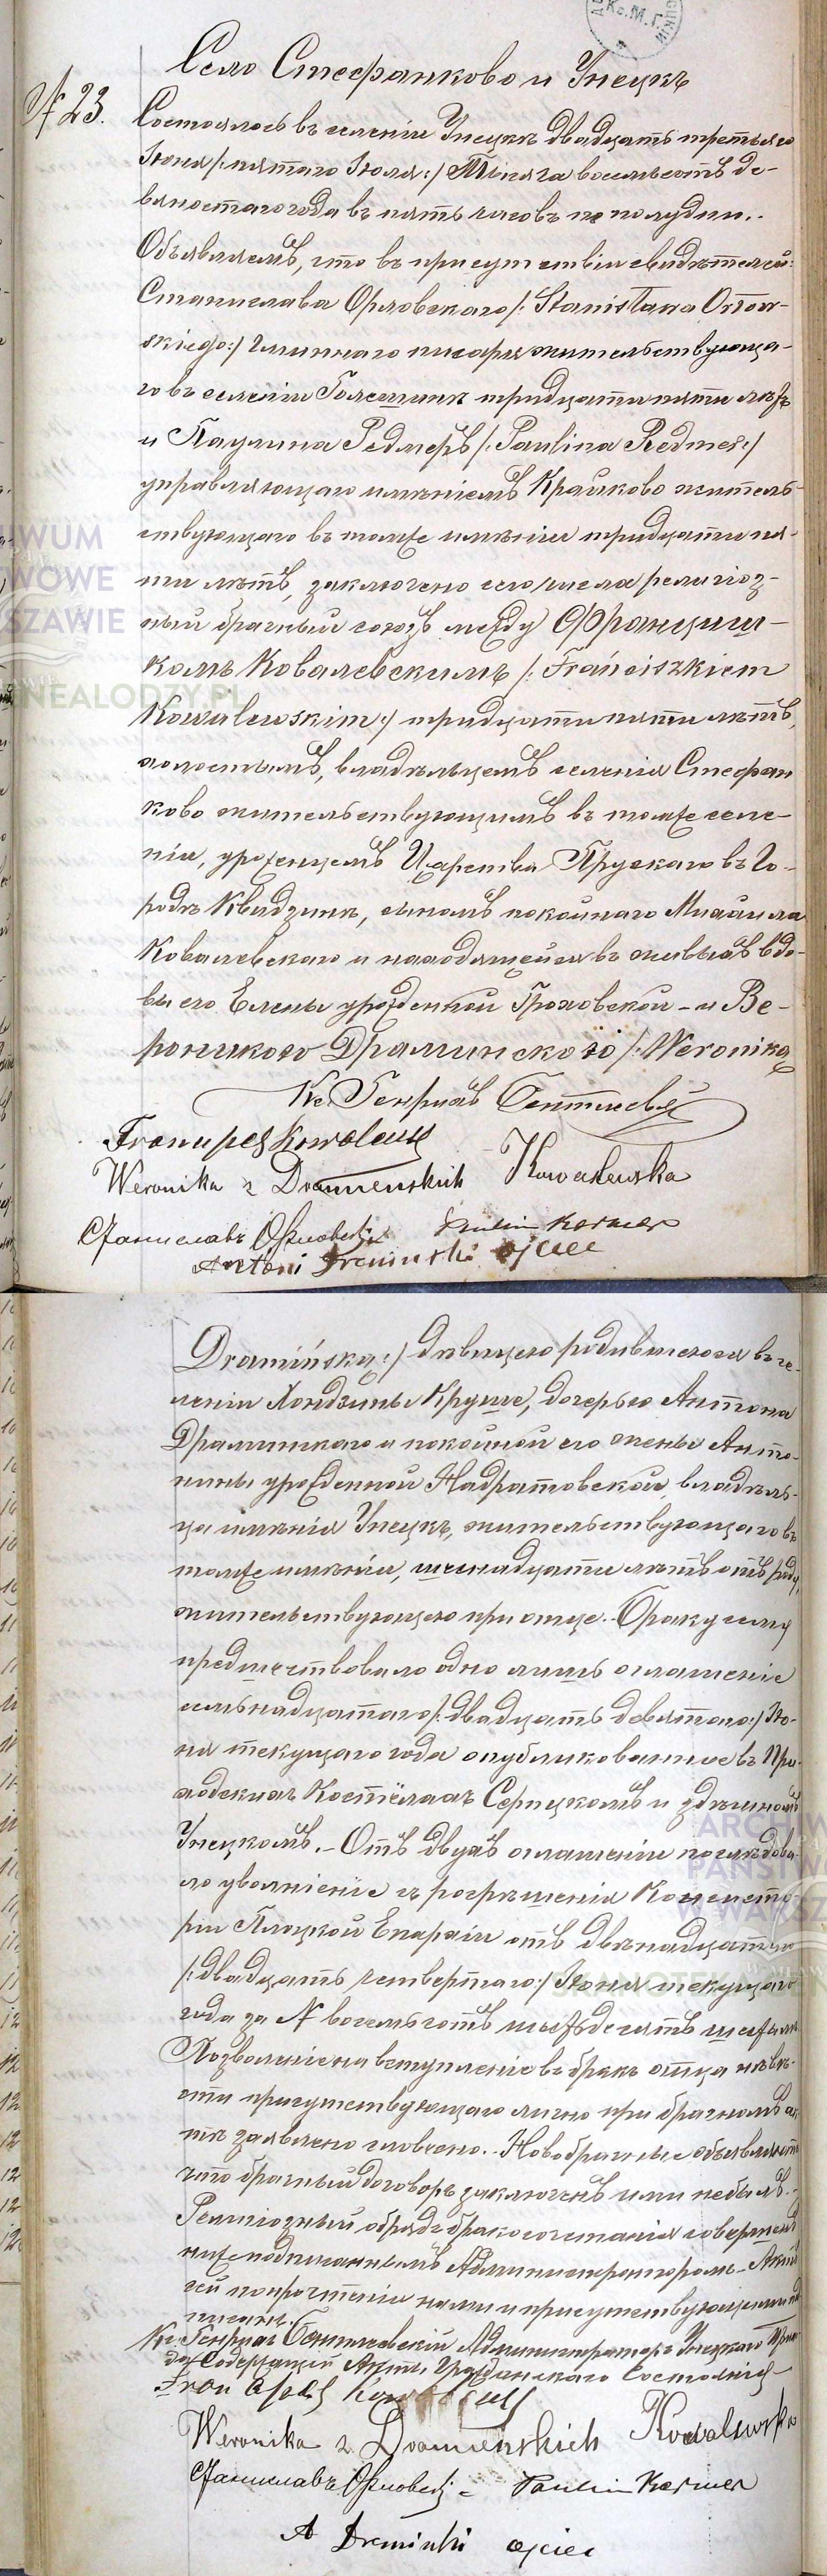 Село Стефанково и Унецкъ
№ 23.
Состоялось въ селеніи Унецкъ двадцать третьяго
Іюня /: пятаго Іюля :/ Тысяча восемьсотъ де-
вяностаго года въ пять часовъ по полудни. -
Объявляемъ, что въ присутствіи свидѣтелей:
Станислава Орловскаго /: Stanisława Orłow-
skiego :/ гминнаго писаря жительствующа-
го въ селеніи Голешинъ тридцати пяти лѣтъ
и Паулина Редмеръ /: Paulina Redmer :/
управляющаго имѣніемъ Крайково житель-
ствующаго въ томже имѣніи тридцати пя-
ти лѣтъ, заключено сего числа религіоз-
ный брачный союзъ между Франциш-
комъ Ковалевскимъ /: Franciszkiem
Kowalewskim :/ тридцати пяти лѣтъ,
холостымъ, владѣльцемъ селенія Стефан
ково жительствующимъ въ томже селе-
ніи, уроженцемъ Царства Прускаго въ Го-
родѣ Квидзинѣ, сыномъ покойнаго Михаила
Ковалевскаго и находящейся въ живыхъ вдо-
вы его Елены урожденной Гроховской - и Ве-
роникою Драминскою /: Weroniką
Кс. Генрихъ
Franciszek Kowalewski
Weronika z Dramińskich Kowalewska
Станиславъ Орловскій
Antoni Dramiński ojciec
Dramińską :/ дѣвицею родившеюся въ се-
леніи Хондзыны Круше, дочерью Антона
Драминскаго и покойной его жены Анто-
нины урожденной Надратовской, владѣль-
ца имѣнія Унецкъ, жительствующаго въ
томже имѣніи, шеснадцати лѣтъ отъ роду,
жительствующею при отце. - Браку сему
предшествовало одно лишь оглашеніе
семьнадцатаго /: двадцать девятаго :/ Ію-
ня текущаго года опубликованное въ При-
ходскихъ Костёлахъ Серпцкомъ и здѣшномъ
Унецкомъ. - Отъ двухъ оглашеніи послѣдова-
ло увольненіе съ розрѣшенія Консисто-
ріи Плоцкой Епархіи отъ двѣнадцатаго
/: двадцать четвертаго :/ Іюня текущаго
года за N восемьсотъ
Позволеніе на вступленіе въ бракъ отца невѣ-
сты присутствующаго лично при брачномъ ак-
тѣ заявлено словесно. - Новобрачные объявляютъ
что брачный договоръ заключенъ ими не былъ. -
Религіозный обрядъ бракосочетанія совершенъ
нижеподписаннымъ Администраторомъ - Актъ
сей по прочтеніи нами и присутствующими под
писанъ.
Кс. Генрихъ Администраторъ Унецкаго Прихо
да Содержащій Акты Гражданскаго Состоянія -
Weronika z Dramińskich Kowalewska
Станиславъ Орловскій - Paulin
A Dramiński ojciec